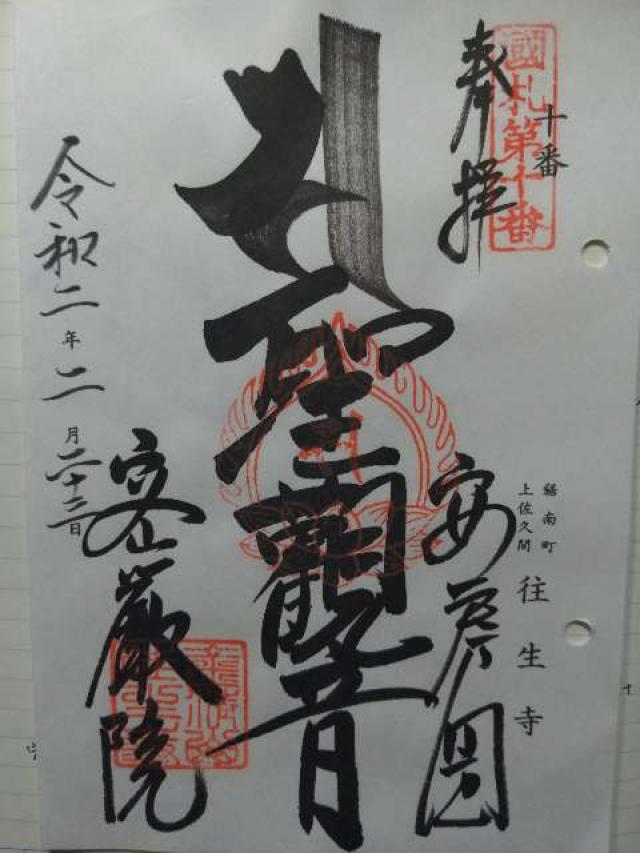 奉拝
十番
國札第十番
鋸南町
上佐久間
往生寺
安房国
聖観音
密厳院
令和二年二月二十二日